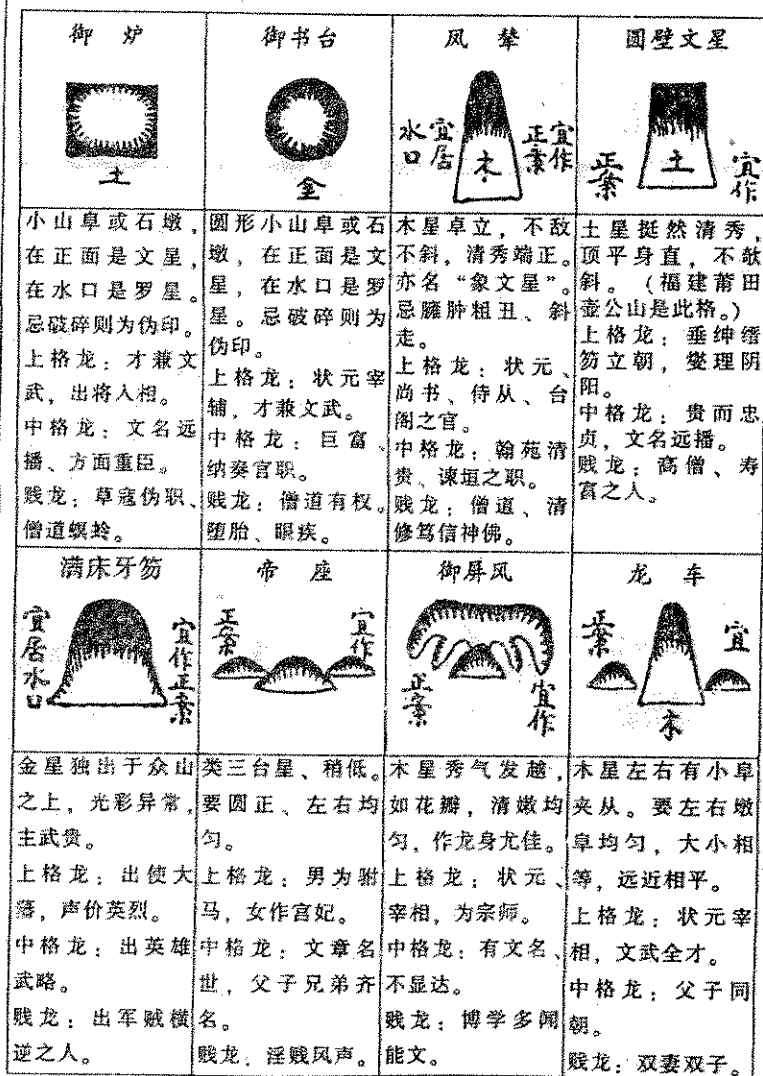 御炉
土
小山阜或石墩，
在正面是文星，
在水口是罗星。
忌破碎则为伪印。
上格龙：才兼文
武，出将入相。
中格龙：文名远
播、方面重臣。
贱龙：草寇伪职、
僧道螟蛉。
御书台
金
圆形小山阜或石
墩，在正面是文
星，在水口是罗
星。忌破碎则为
伪印。
上格龙：状元宰
辅，才兼文武。
中格龙：巨富、
纳奏官职。
贱龙：僧道有权。
堕胎、眼疾。
凤辇
宜居
水口
木
宜作
正案
木星卓立，不欹
不斜，清秀端正。
亦名“象文星”。
忌臃肿粗丑、斜
走。
上格龙：状元、
尚书、侍从、台
阁之官。
中格龙：翰苑清
贵、谏垣之职。
贱龙：僧道、清
修笃信神佛。
圆壁文星
宜作
正案
土
土星挺然清秀，
顶平身直，不欹
斜。（福建莆田
壶公山是此格。）
上格龙：垂绅缙
笏立朝，燮理阴
阳。
中格龙：贵而忠
贞，文名远播。
贱龙：高僧、寿
富之人。
满床牙笏
宜居水口
宜作正案
金星独出于众山
之上，光彩异常，
主武贵。
上格龙：出使大
藩，声价英烈。
中格龙：出英雄
武略。
贱龙：出军贼横
逆之人。
帝座
宜作
正案
类三台星、稍低。
要圆正、左右均
匀。
上格龙：男为驸
马，女作宫妃。
中格龙：文章名
世，父子兄弟齐
名。
贱龙：淫贱风声。
御屏风
宜作
正案
木星秀气发越，
如花瓣，清嫩均
匀，作龙身尤佳。
上格龙：状元、
宰相，为宗师。
中格龙：有文名、
不显达。
贱龙：博学多闻
能文。
龙车
宜
正案
木
木星左右有小阜
夹从。要左右墩
阜均匀，大小相
等，远近相平。
上格龙：状元宰
相，文武全才。
中格龙：父子同
朝。
贱龙：双妻双子。